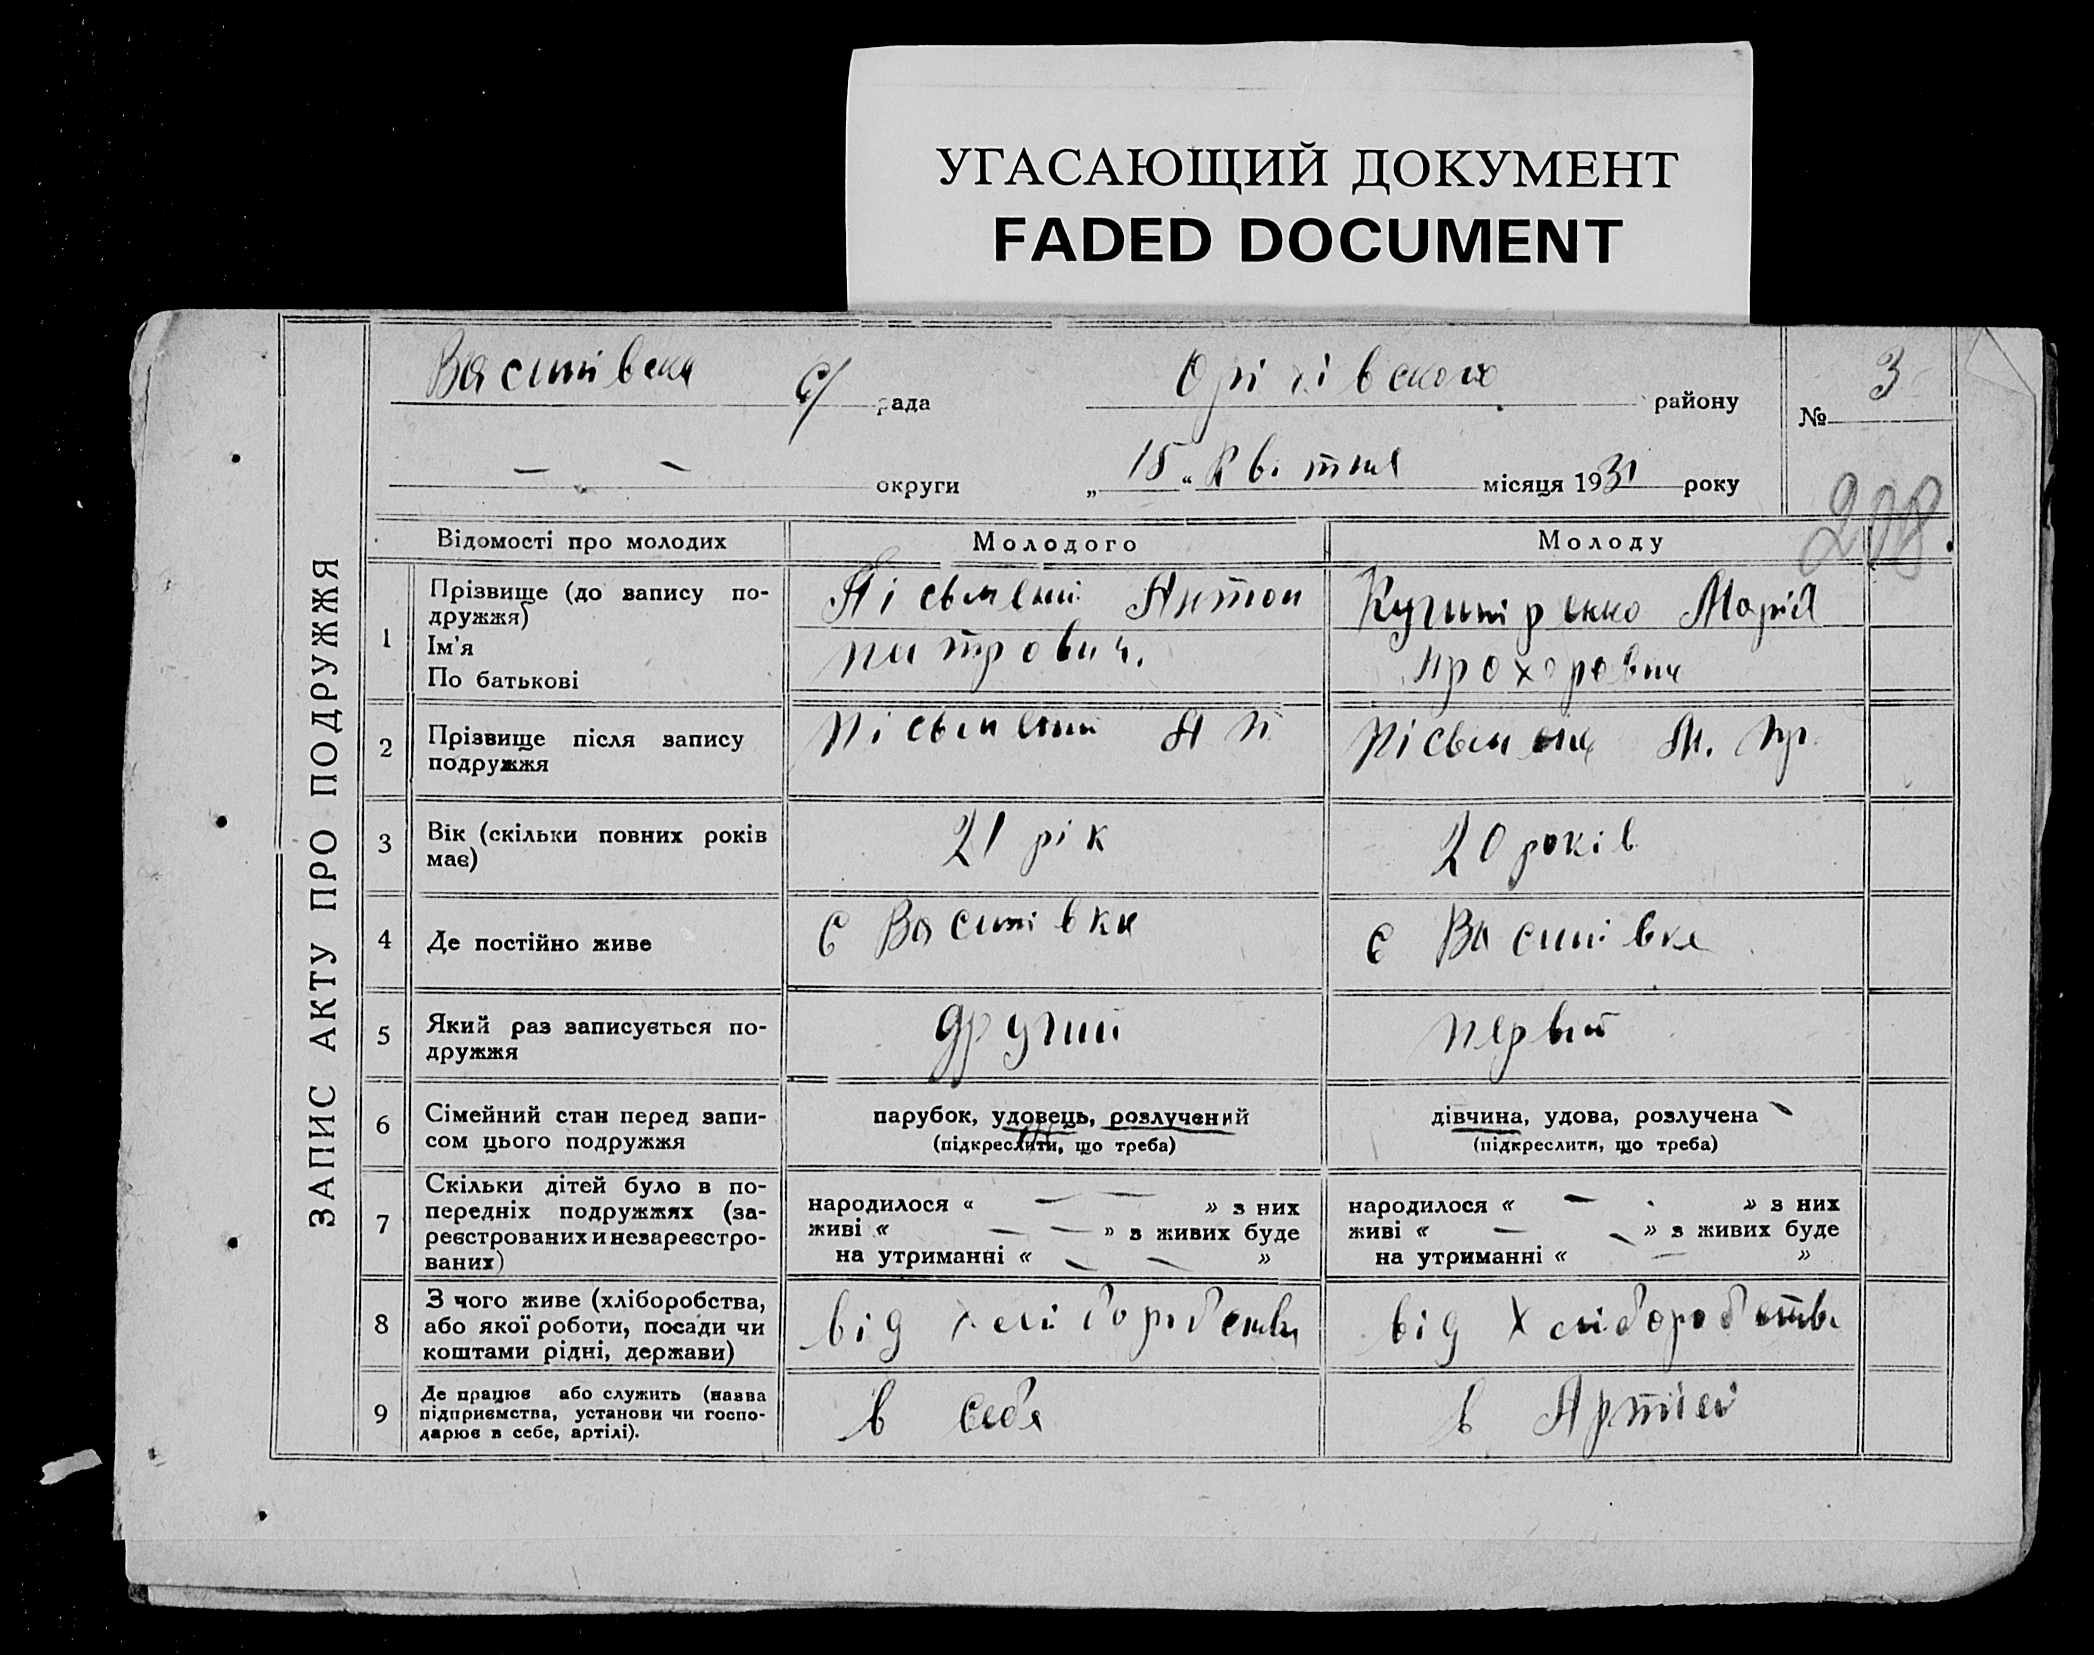 УГАСАЮЩИЙ ДОКУМЕНТ
FADED DOCUMENT
ЗАПИС АКТУ ПРО ПОДРУЖЖЯ
Васинівска с/ рада Оріхівського району № 3
— — округи „ 15 “ Квітня місяця 1931 року
208
Відомості про молодих Молодого Молоду
1 Прізвище (до запису по-
дружжя)
Ім'я
По батькові
Пісьмений Антон
питрович.
Кушніренко Марія
прохоровни
2 Прізвище після запису
подружжя
Пісьмений А П
Пісьмена М. Пр.
3 Вік (скільки повних років
має)
21 рік
20 років
4 Де постійно живе
с Васинівки
с Васинівке
5 Який раз записується по-
дружжя
другий
первий
6 Сімейний стан перед запи-
сом цього подружжя
парубок, удовець, розлучений
(підкреслити, що треба)
дівчина, удова, розлучена
(підкреслити, що треба)
7 Скільки дітей було в по-
передніх подружжях (за-
реєстрованих и незареєстро-
ваних)
народилося « — — » з них
живі « — — » з живих буде
на утриманні « — — »
народилося « — » з них
живі « — — » з живих буде
на утриманні « — »
8 З чого живе (хліборобства,
або якої роботи, посади чи
коштами рідні, держави)
від хліборобства
від хліборобств
9 Де працює або служить (назва
підприємства, установи чи госпо-
дарює в себе, артілі).
в себе
в Артілі